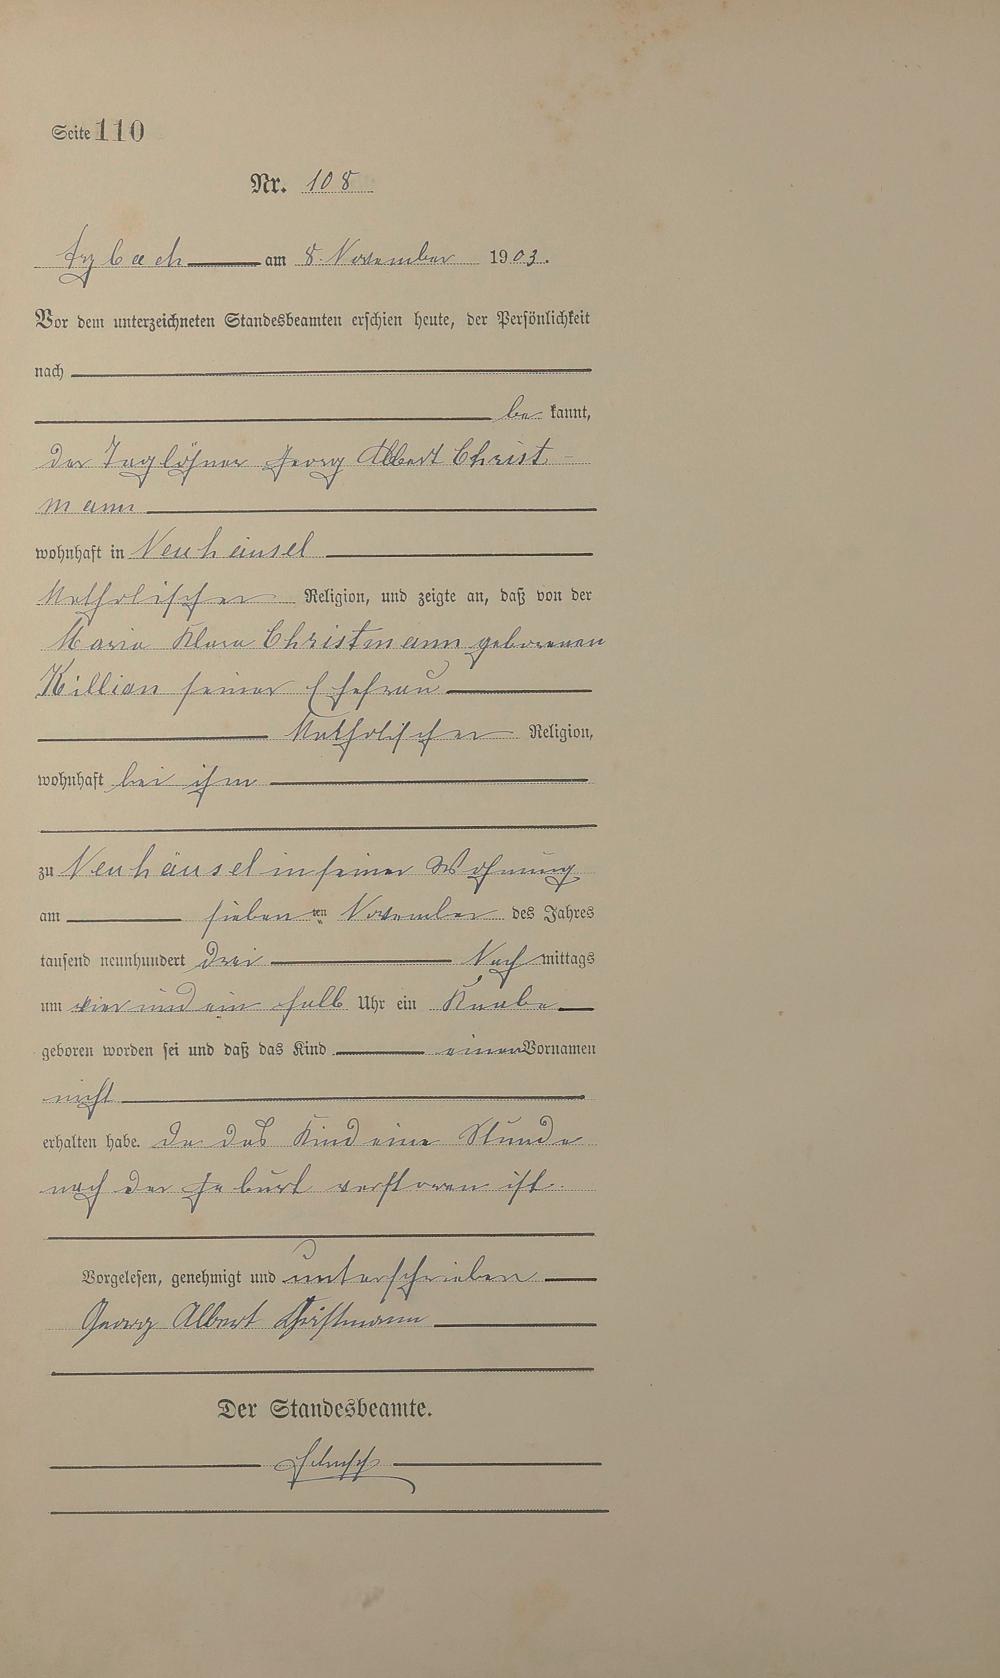 Seite 110
Nr. 108
Arzbach am 8. November 1903.
Vor dem unterzeichneten Standesbeamten erschien heute, der Persönlichkeit
nach
be kannt,
der Taglöhner Georg Albert Christ-
mann
wohnhaft in Neuhäusel
Katholischer Religion, und zeigte an, daß von der
Maria Klara Christmann geborenen
Killian seiner Ehefrau
Katholischer Religion,
wohnhaft bei ihm
zu Neuhäusel in seiner Wohnung
am siebenten November des Jahres
tausend neunhundert drei Nach mittags
um vier und ein halb Uhr ein Knabe
geboren worden sei und daß das Kind einen Vornamen
nicht
erhalten habe. Da das Kind eine Stunde
nach der Geburt verstorven ist.
Vorgelesen, genehmigt und unterschrieben
Georg Albert Christmann
Der Standesbeamte.